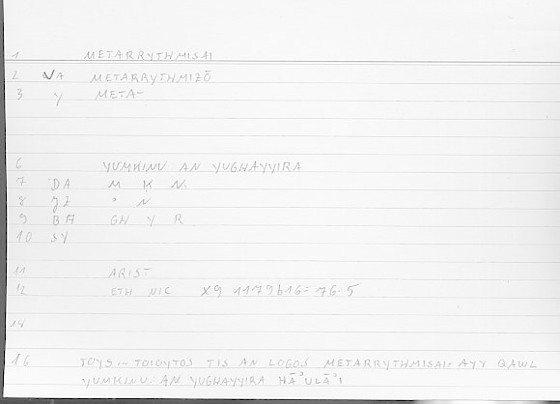 1 METARRYTHMISAI
2 VA METARRYTHMIZŌ
3 Y META-
6 YUMKINU AN YUGHAYYIRA
7 DA M K N.
8 JZ ʾ N
9 BA GH Y R
10 SY
11 ARIST
12 ETH NIC X9 1179b16= 76.5
14
16 TOYS... TOIOYTOS TIS AN LOGOS METARRYTHMISAI= AYY QAWL
YUMKINU. AN YUGHAYYIRA HĀʾULĀʾI